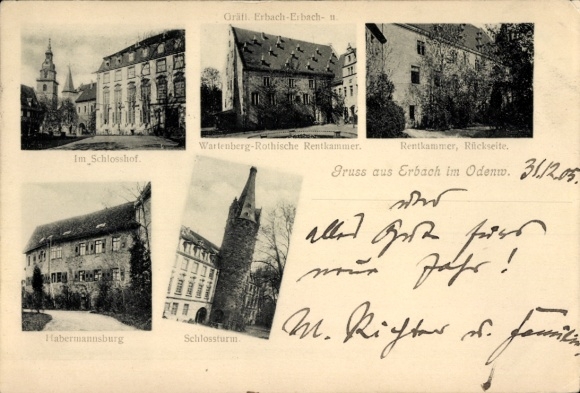 Gräfl. Erbach-Erbach- u.
Im Schlosshof.
Wartenberg-Rothische Rentkammer.
Rentkammer, Rückseite.
Gruss aus Erbach im Odenw.
31.12.05.
und
alles Gute fürs
neue Jahr!
M. Richter u. Familie
Habermannsburg
Schlossturm.